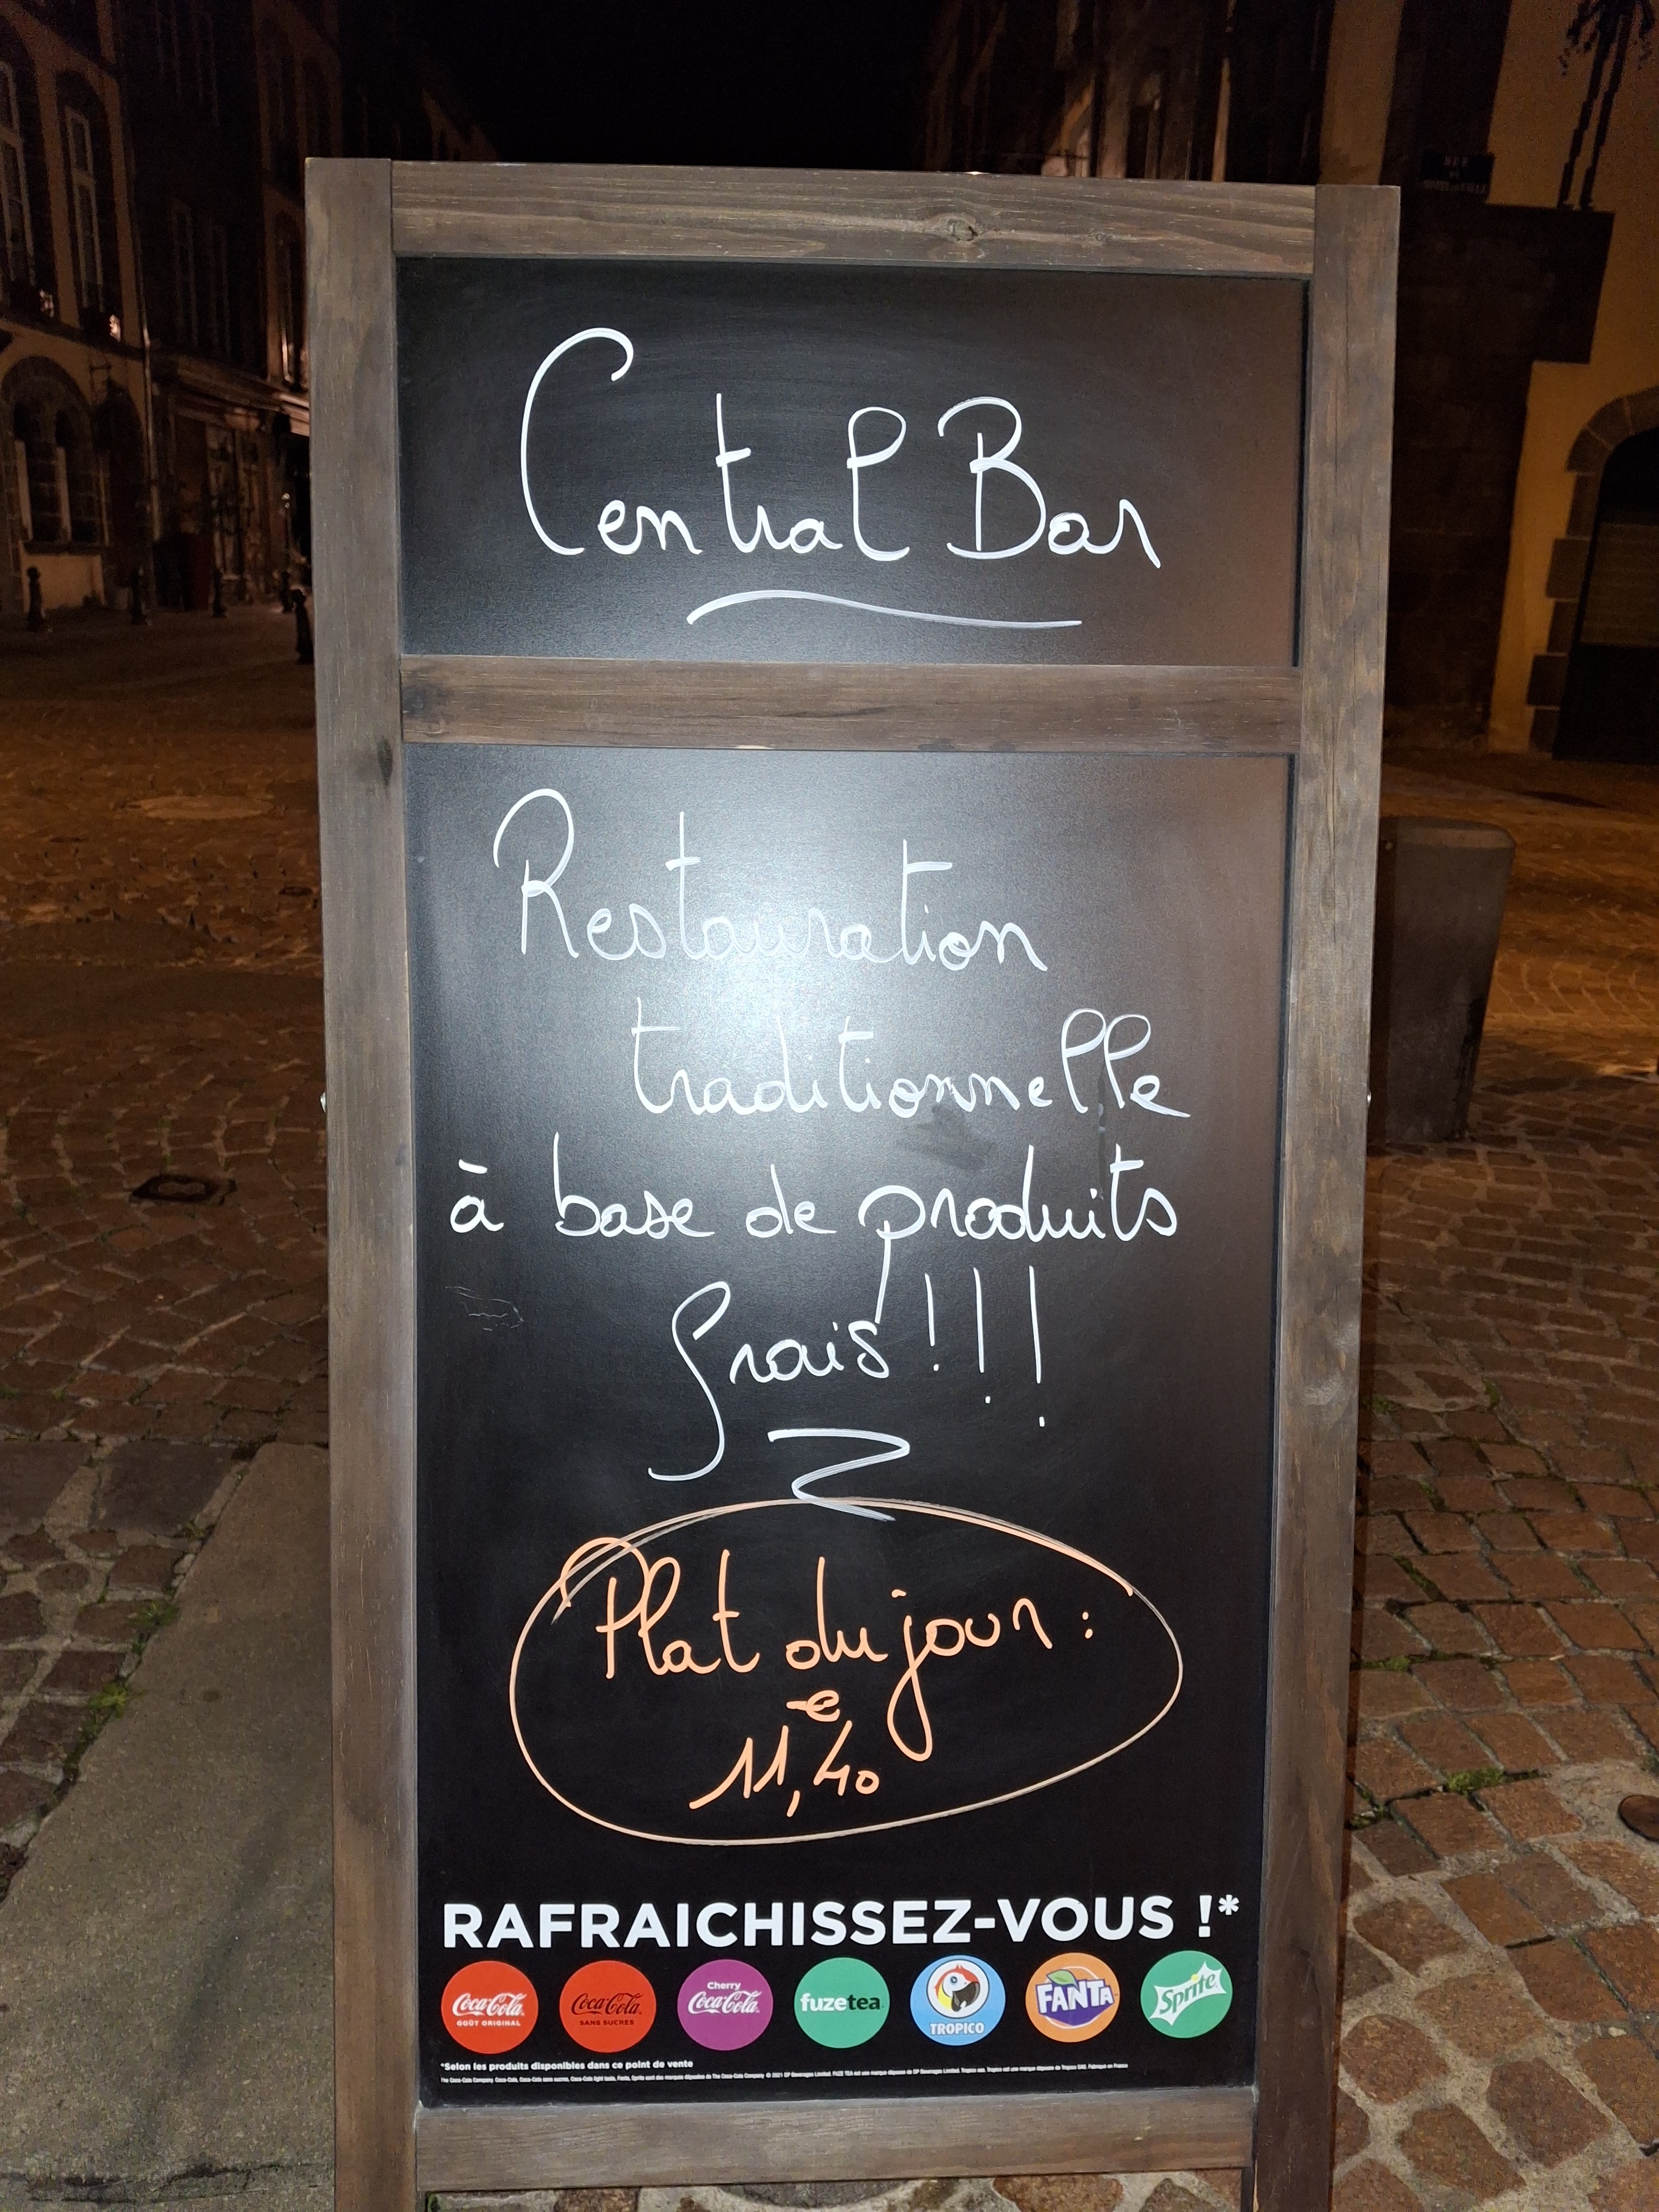 RUE
Central Bar
Restauration
traditionnelle
à base de produits
frais!!!
Plat du jour :
€
11,40
RAFRAICHISSEZ-VOUS !*
Coca-Cola GOÛT ORIGINAL
Coca-Cola SANS SUCRES
Cherry Coca-Cola
fuzetea
TROPICO
FANTA
Sprite
*Selon les produits disponibles dans ce point de vente